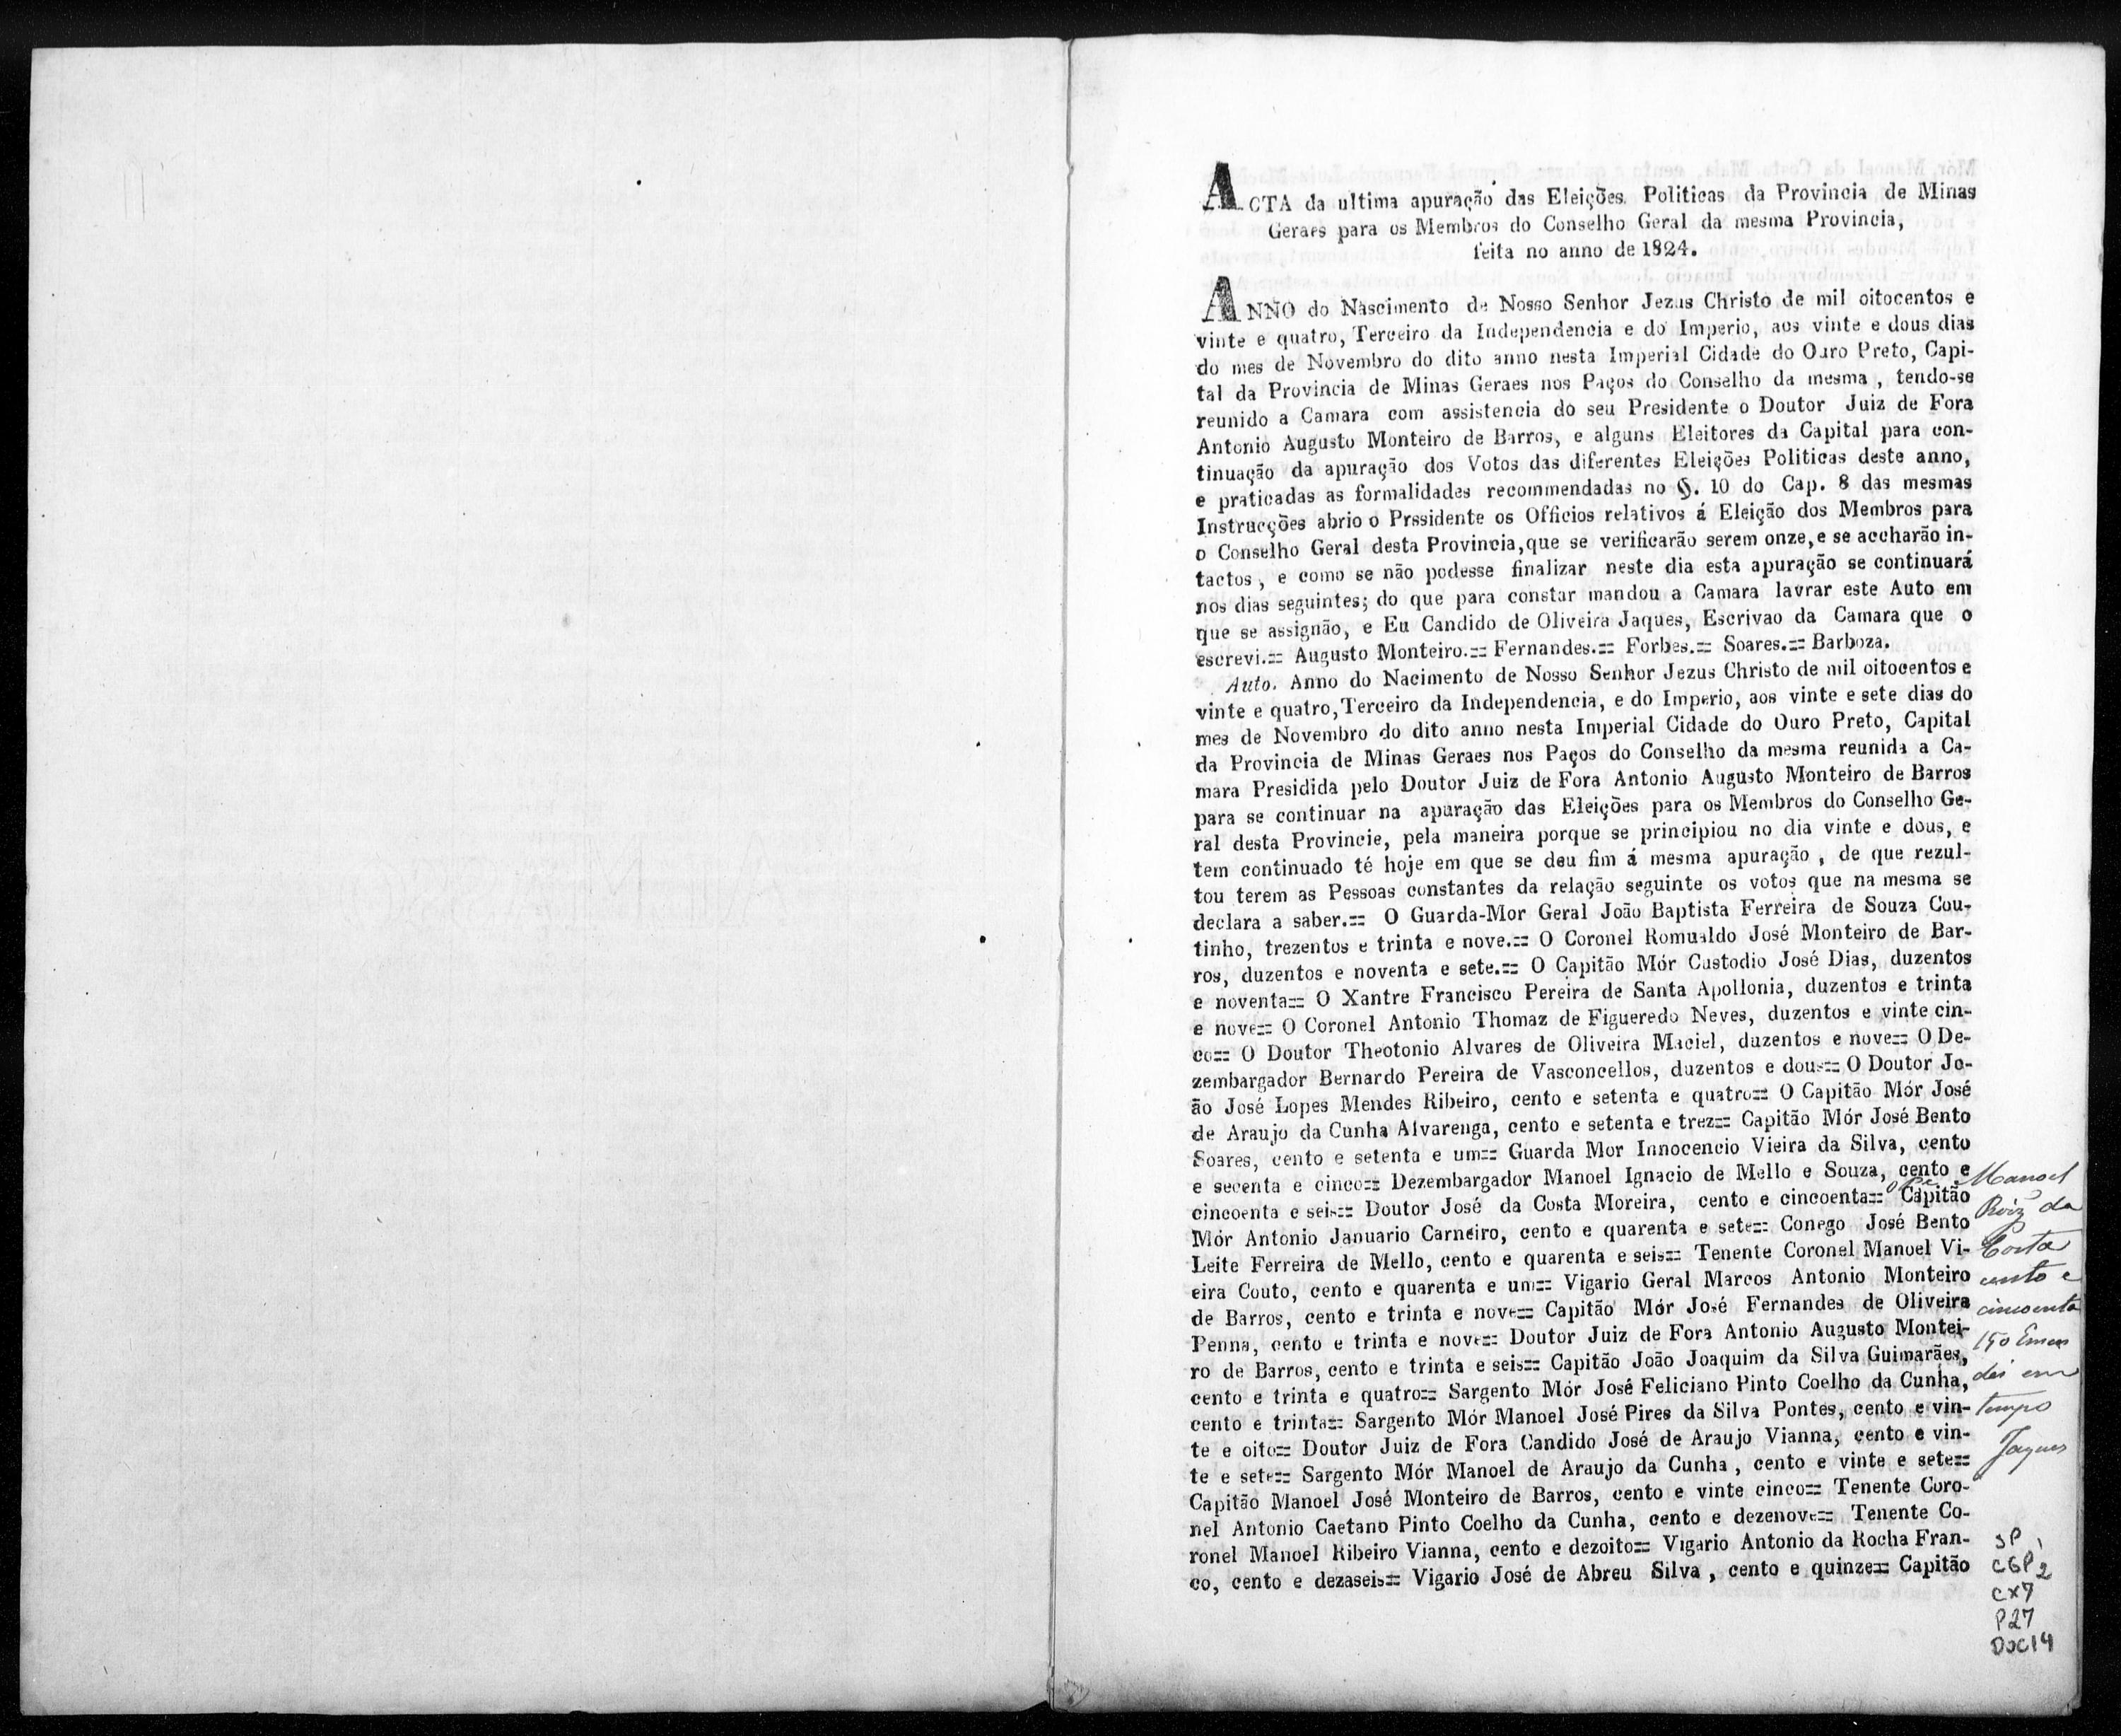 ACTA da ultima apuração das Eleições Politicas da Provincia de Minas
Geraes para os Membros do Conselho Geral da mesma Provincia,
feita no anno de 1824.
ANNO do Nascimento de Nosso Senhor Jezus Christo de mil oitocentos e
vinte e quatro, Terceiro da Independencia e do Imperio, aos vinte e dous dias
do mes de Novembro do dito anno nesta Imperial Cidade do Ouro Preto, Capi-
tal da Provincia de Minas Geraes nos Paços do Conselho da mesma, tendo-se
reunido a Camara com assistencia do seu Presidente o Doutor Juiz de Fora
Antonio Augusto Monteiro de Barros, e alguns Eleitores da Capital para con-
tinuação da apuração dos Votos das diferentes Eleições Politicas deste anno,
e praticadas as formalidades recommendadas no §. 10 do Cap. 8 das mesmas
Instrucções abrio o Prssidente os Officios relativos á Eleição dos Membros para
o Conselho Geral desta Provincia, que se verificarão serem onze, e se accharão in-
tactos, e como se não podesse finalizar neste dia esta apuração se continuará
nos dias seguintes; do que para constar mandou a Camara lavrar este Auto em
que se assignão, e Eu Candido de Oliveira Jaques, Escrivao da Camara que o
escrevi.== Augusto Monteiro.== Fernandes.== Forbes.== Soares.== Barboza.
Auto. Anno do Nacimento de Nosso Senhor Jezus Christo de mil oitocentos e
vinte e quatro, Terceiro da Independencia, e do Imperio, aos vinte e sete dias do
mes de Novembro do dito anno nesta Imperial Cidade do Ouro Preto, Capital
da Provincia de Minas Geraes nos Paços do Conselho da mesma reunida a Ca-
mara Presidida pelo Doutor Juiz de Fora Antonio Augusto Monteiro de Barros
para se continuar na apuração das Eleições para os Membros do Conselho Ge-
ral desta Provincie, pela maneira porque se principiou no dia vinte e dous, e
tem continuado té hoje em que se deu fim á mesma apuração, de que rezul-
tou terem as Pessoas constantes da relação seguinte os votos que na mesma se
declara a saber.== O Guarda-Mor Geral João Baptista Ferreira de Souza Cou-
tinho, trezentos e trinta e nove.== O Coronel Romualdo José Monteiro de Bar-
ros, duzentos e noventa e sete.== O Capitão Mór Custodio José Dias, duzentos
e noventa== O Xantre Francisco Pereira de Santa Apollonia, duzentos e trinta
e nove== O Coronel Antonio Thomaz de Figueredo Neves, duzentos e vinte cin-
co== O Doutor Theotonio Alvares de Oliveira Maciel, duzentos e nove== O De-
zembargador Bernardo Pereira de Vasconcellos, duzentos e dous== O Doutor Jo-
ão José Lopes Mendes Ribeiro, cento e setenta e quatro== O Capitão Mór José
de Araujo da Cunha Alvarenga, cento e setenta e trez== Capitão Mór José Bento
Soares, cento e setenta e um== Guarda Mor Innocencio Vieira da Silva, cento
e secenta e cinco== Dezembargador Manoel Ignacio de Mello e Souza, cento e
cincoenta e seis== Doutor José da Costa Moreira, cento e cincoenta== Capitão
Mór Antonio Januario Carneiro, cento e quarenta e sete== Conego José Bento
Leite Ferreira de Mello, cento e quarenta e seis== Tenente Coronel Manoel Vi-
eira Couto, cento e quarenta e um== Vigario Geral Marcos Antonio Monteiro
de Barros, cento e trinta e nove== Capitão Mór José Fernandes de Oliveira
Penna, cento e trinta e nove== Doutor Juiz de Fora Antonio Augusto Montei-
ro de Barros, cento e trinta e seis== Capitão João Joaquim da Silva Guimarães,
cento e trinta e quatro== Sargento Mór José Feliciano Pinto Coelho da Cunha,
cento e trinta== Sargento Mór Manoel José Pires da Silva Pontes, cento e vin-
te e oito== Doutor Juiz de Fora Candido José de Araujo Vianna, cento e vin-
te e sete== Sargento Mór Manoel de Araujo da Cunha, cento e vinte e sete==
Capitão Manoel José Monteiro de Barros, cento e vinte cinco== Tenente Coro-
nel Antonio Caetano Pinto Coelho da Cunha, cento e dezenove== Tenente Co-
ronel Manoel Ribeiro Vianna, cento e dezoito== Vigario Antonio da Rocha Fran-
co, cento e dezaseis== Vigario José de Abreu Silva, cento e quinze== Capitão
o Pe. Manoel
Roiz da
Costa
cento e
cincoenta
150 Emen
dei em
tempo
Jaques
SP
CGP 2
CX7
P27
Doc14